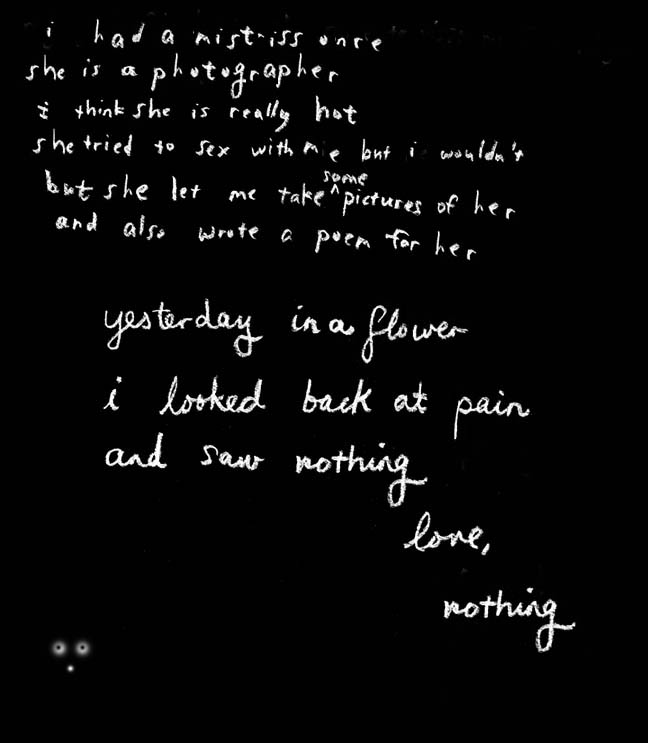 i had a mistriss once
she is a photographer
i think she is really hot
she tried to sex with me but i wouldn't
but she let me take some pictures of her
and also wrote a poem for her
yesterday in a flower
i looked back at pain
and saw nothing
love,
nothing